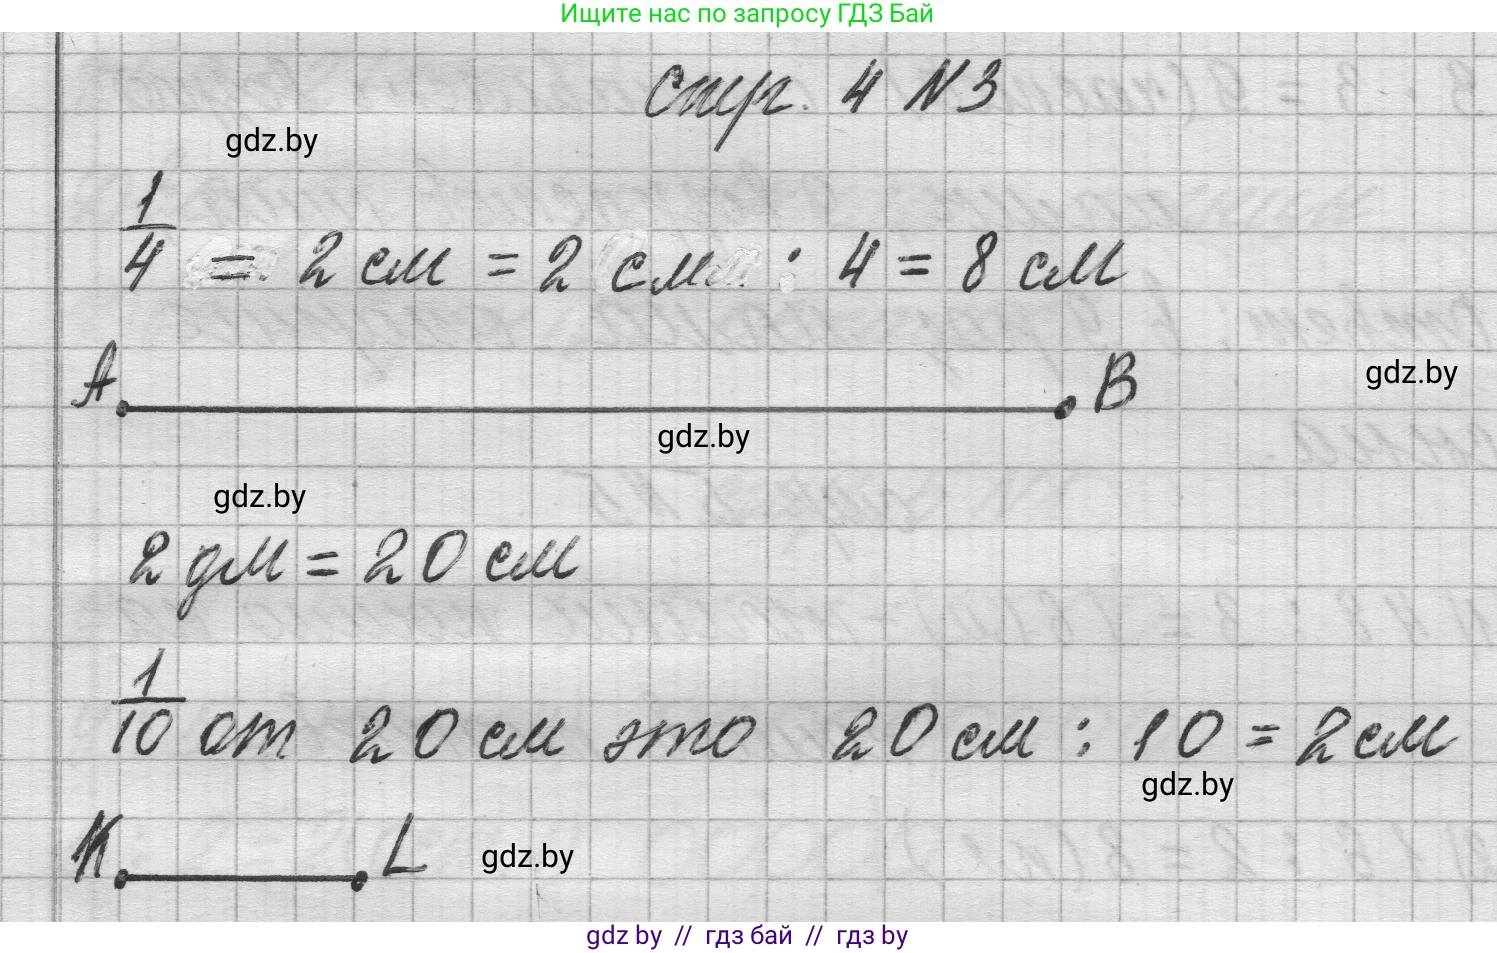 Ищите нас по запросу ГДЗ Бай
стр. 4 N3
gdz.by
1/4 = 2 см = 2 см : 4 = 8 см
A B
gdz.by
gdz.by
gdz.by
2 дм = 20 см
1/10 от 20 см это 20 см : 10 = 2 см
gdz.by
K L
gdz.by
gdz by // гдз бай // гдз by